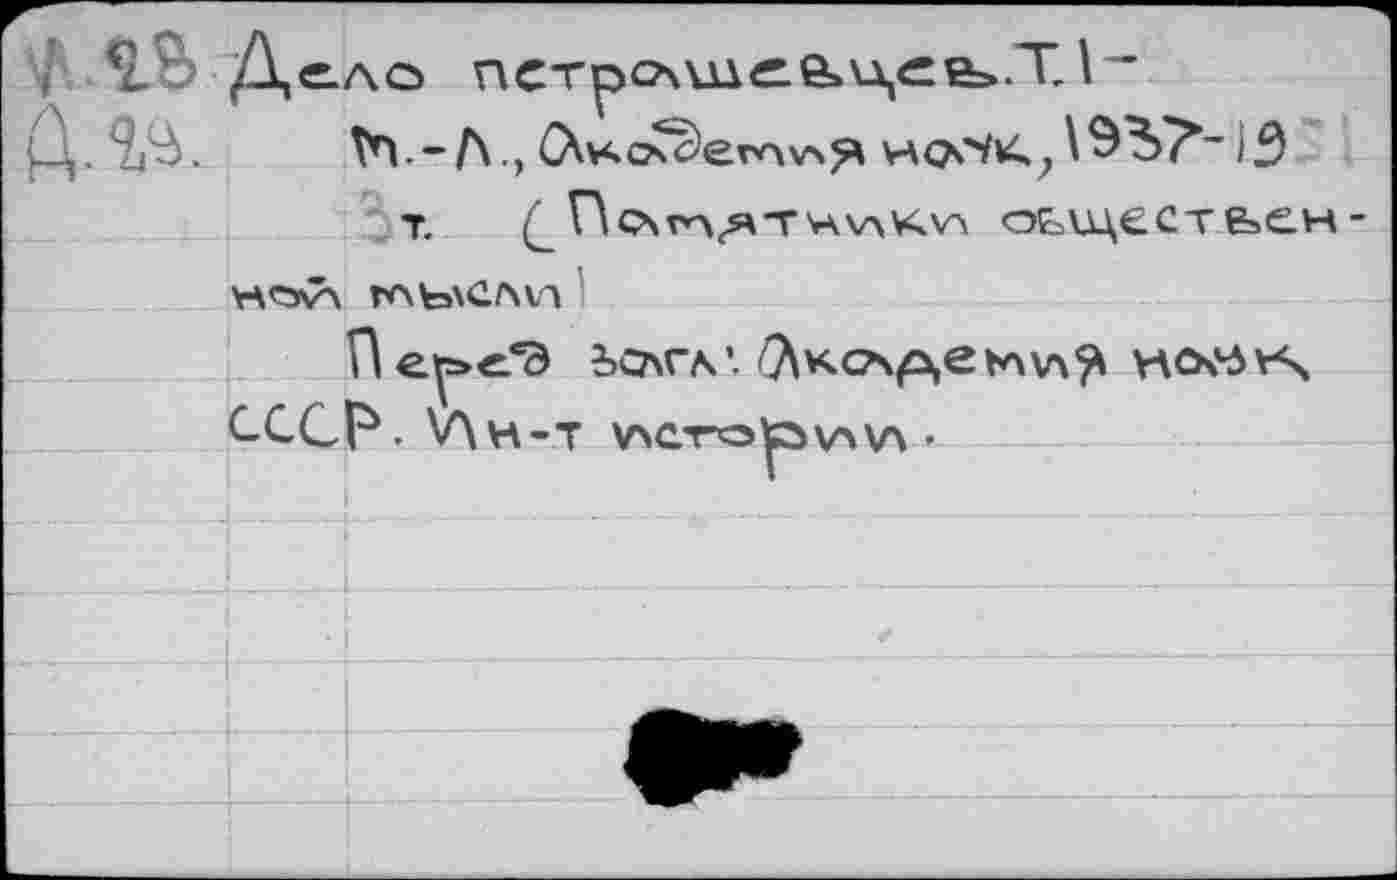 Дело петрашевцев. Т. 1 -
М.-Л., Академия наук, 1937-19
т. (Памятники обществен-
ной мысли
Перед загл: Академия наук
СССР. Ин-т истории.